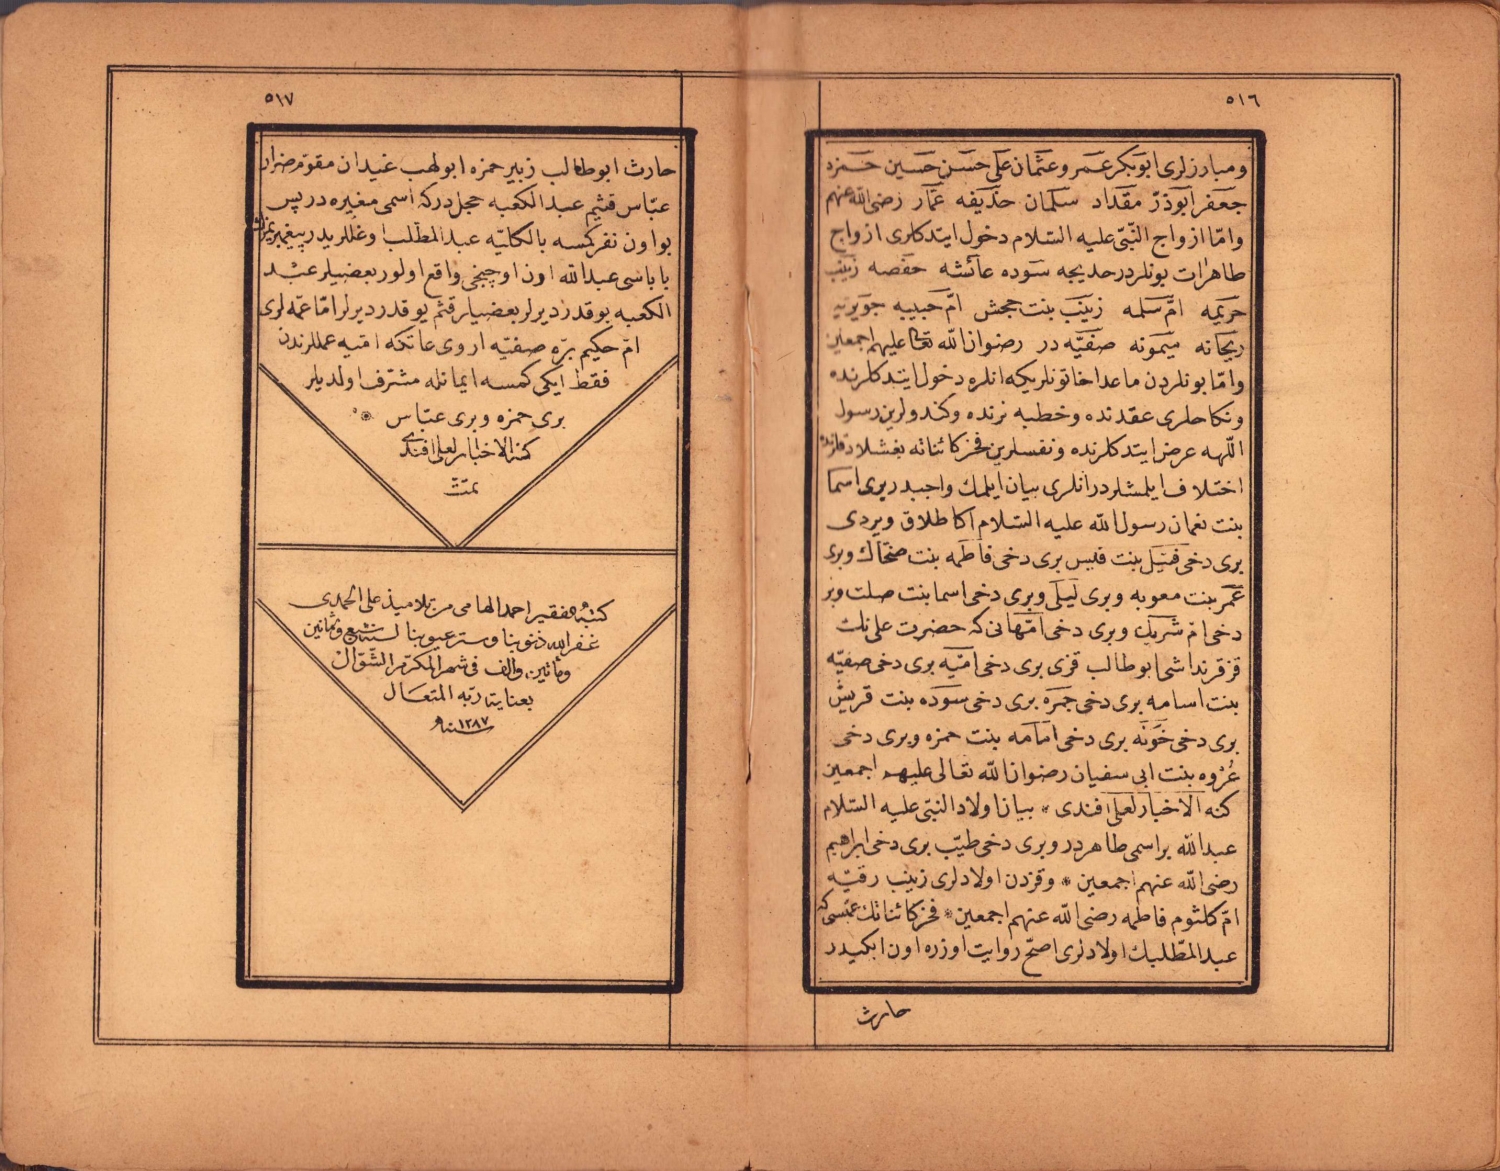 ٥١٦
ومبارزلری ابوبکر عمر وعثمان علی حسن حسین حمزه
جعفر ابوذرّ مقداد سلمان حذیفه عمّار رضی الله عنهم
وامّا ازواج النّبی علیه السّلام دخول ایتدکلری ازواج
طاهرات بونلردر خدیجه سوده عائشه حفصه زینب
خزیمه امّ سلمه زینب بنت جحش امّ حبیبه جویریه
ریحانه میمونه صفیّه در رضوان الله تعالی علیهم اجمعین
وامّا بونلردن ماعدا خاتونلریکه انلره دخول ایتدکلرنده
ونکاحلری عقدنده وخطبه لرنده وکندولرین رسول
اللهه عرض ایتدکلرنده ونفسلرین فخر کائناته بغشلادقلرنده
اختلاف ایلمشلردر انلری بیان ایلمك واجبدر بری اسما
بنت نعمان رسول الله علیه السّلام اکا طلاق ویردی
بری دخی قتیل بنت قلیس بری دخی فاطمه بنت ضحّاك وبری
عمر بنت معویه وبری لیلی وبری دخی اسما بنت صلت وبر
دخی امّ شریك وبری دخی امّهانی که حضرت علی نك
قز قرنداشی ابوطالب قزی بری دخی امیّه بری دخی صفیّه
بنت اسامه بری دخی جمره بری دخی سوده بنت قریش
بری دخی خونه بری دخی امامه بنت حمزه وبری دخی
عُزوه بنت ابی سفیان رضوان الله تعالی علیهم اجمعین
کنه الاخبار لعلی افندی * بیان اولاد النبی علیه السّلام
عبدالله بر اسمی طاهردر وبری دخی طیّب بری دخی ابراهیم
رضی الله عنهم اجمعین * وقزدن اولادلری زینب رقیّه
امّ کلثوم فاطمه رضی الله عنهم اجمعین * فخر کائناتك عمّسی که
عبدالمطّلبك اولادلری اصحّ روایت اوزره اون ایکیدر
حارث
٥١٧
حارث ابوطالب زبیر حمزه ابولهب غیدان مقوّم ضرار
عبّاس قثیم عبدالکعبه حجل درکه اسمی مغیره در پس
بو اون نفر کمسه بالکلیّه عبدالمطّلب اوغللریدر پیغمبریمزك
باباسی عبدالله اون اوچنجی واقع اولور بعضیلر عبد
الکعبه یوقدر دیرلر بعضیلر قثم یوقدر دیرلر امّا عمّه لری
امّ حکیم برّه صفیّه اروی عاتکه امیه عمللرندن
فقط ایکی کمسه ایمانله مشترف اولدیلر
بری حمزه وبری عبّاس *
کنه الاخبار لعلی افندی
تمّت
کتبهُ الفقیر احمد الهامی من تلامیذ علی الحمدی
غفر الله ذنوبنا وستر عیوبنا لسنة سبع وثمانین
ومأتین والف فی شهر المکرّم الشّوّال
بعنایة ربّه المتعال
سنه ١٢٨٧